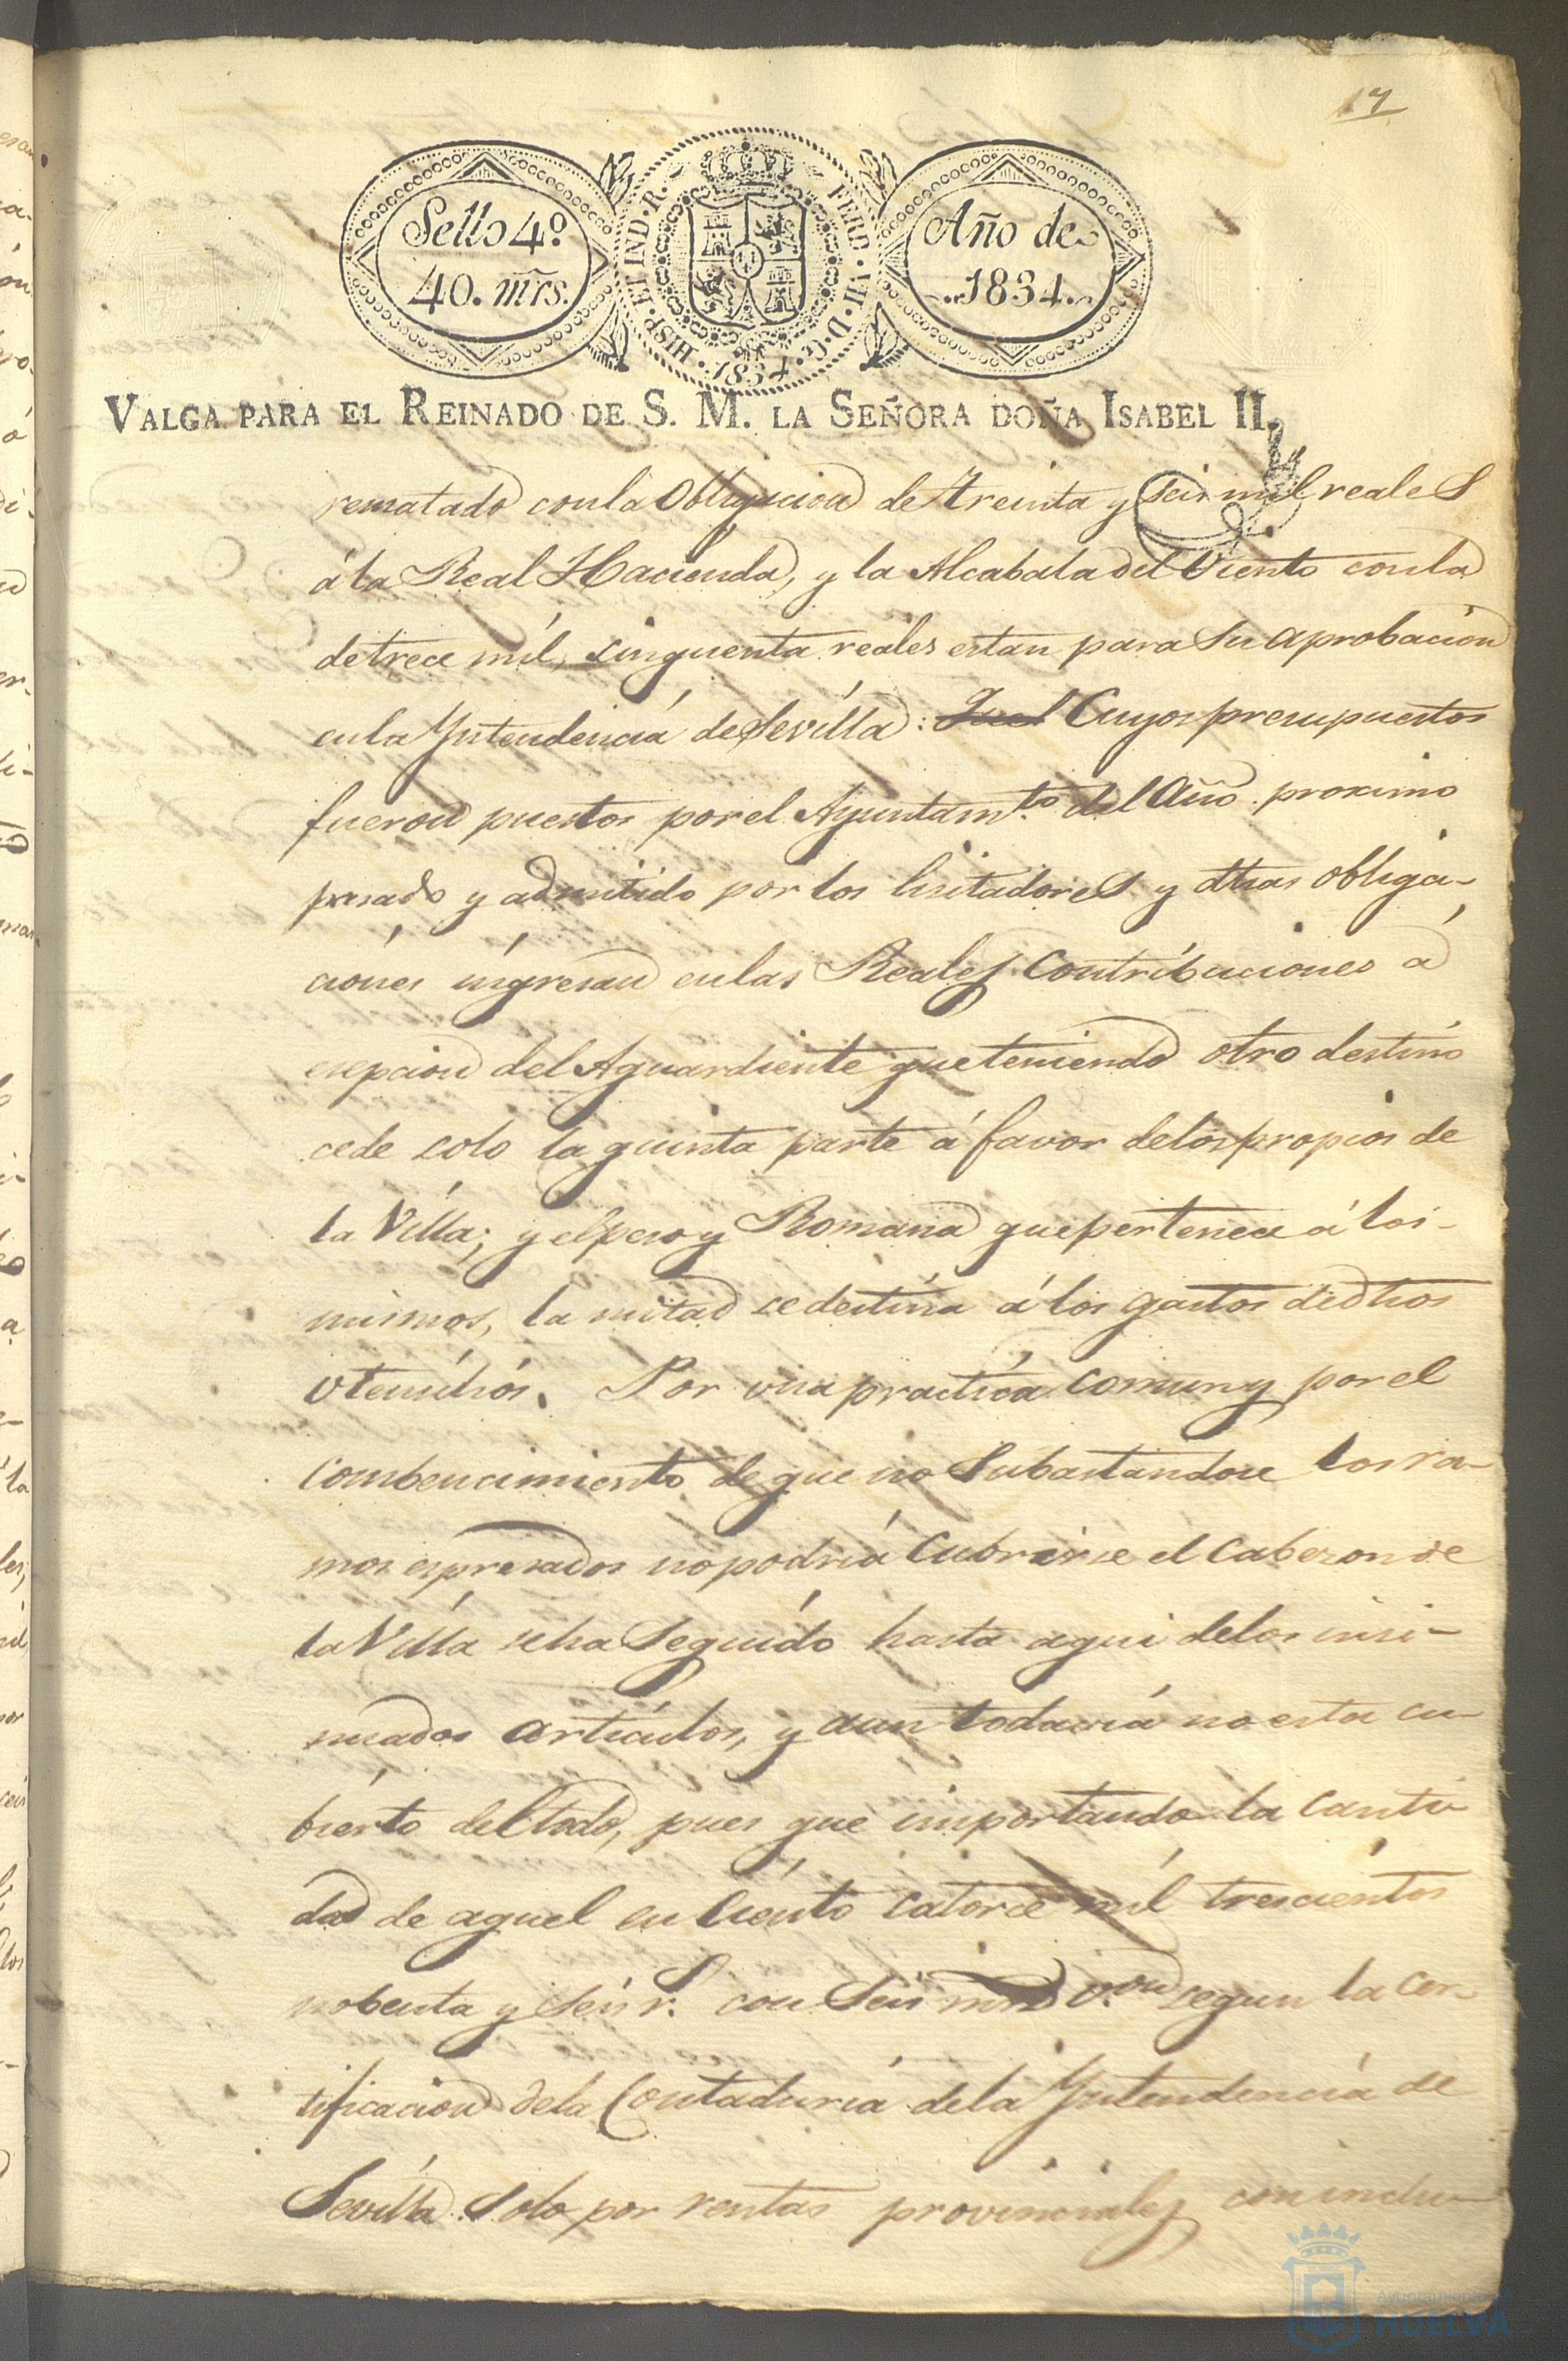 17
Sello 4º
40. mrs.
HISP. ET IND. R.
FERD. VII. D. G.
1834
Año de
1834.
VALGA PARA EL REINADO DE S. M. LA SEÑORA DOÑA ISABEL II.
rematado con la Obligacion de treinta y seis mil reales
á la Real Hacienda, y la Alcabala del Viento con la
de trece mil, cinquenta reales estan para su aprobación
en la Yntendencia de Sevilla: Cuyos presupuestos
fueron puestos por el Ayuntamto. del Año proximo
pasado y admitido por los lisitadores y dhas obliga-
ciones ingresan en las Reales Contribuciones á
esepcion del Aguardiente que teniendo otro destino
cede solo la quinta parte á favor de los propios de
la Villa; y el peso y Romana que pertenece á los
mismos, la mitad se destina á los gastos de dhos
utensilios. Por una practica comun y por el
combencimiento de que no Subastandose los ra-
mos espresados no podria Cubrirse el Cabezon de
la Villa se ha Seguido hasta aqui de los insi-
nuados articulos, y aun todavia no esta cu-
bierto del todo, pues que importando la canti-
dad de aquel en Ciento catorce mil trescientos
nobenta y seis rs. con Seis mrs von segun la Cer-
tificacion de la Contaduria de la Yntendencia de
Sevilla Solo por rentas provinciales con inclu-
Ayuntamiento
HUELVA